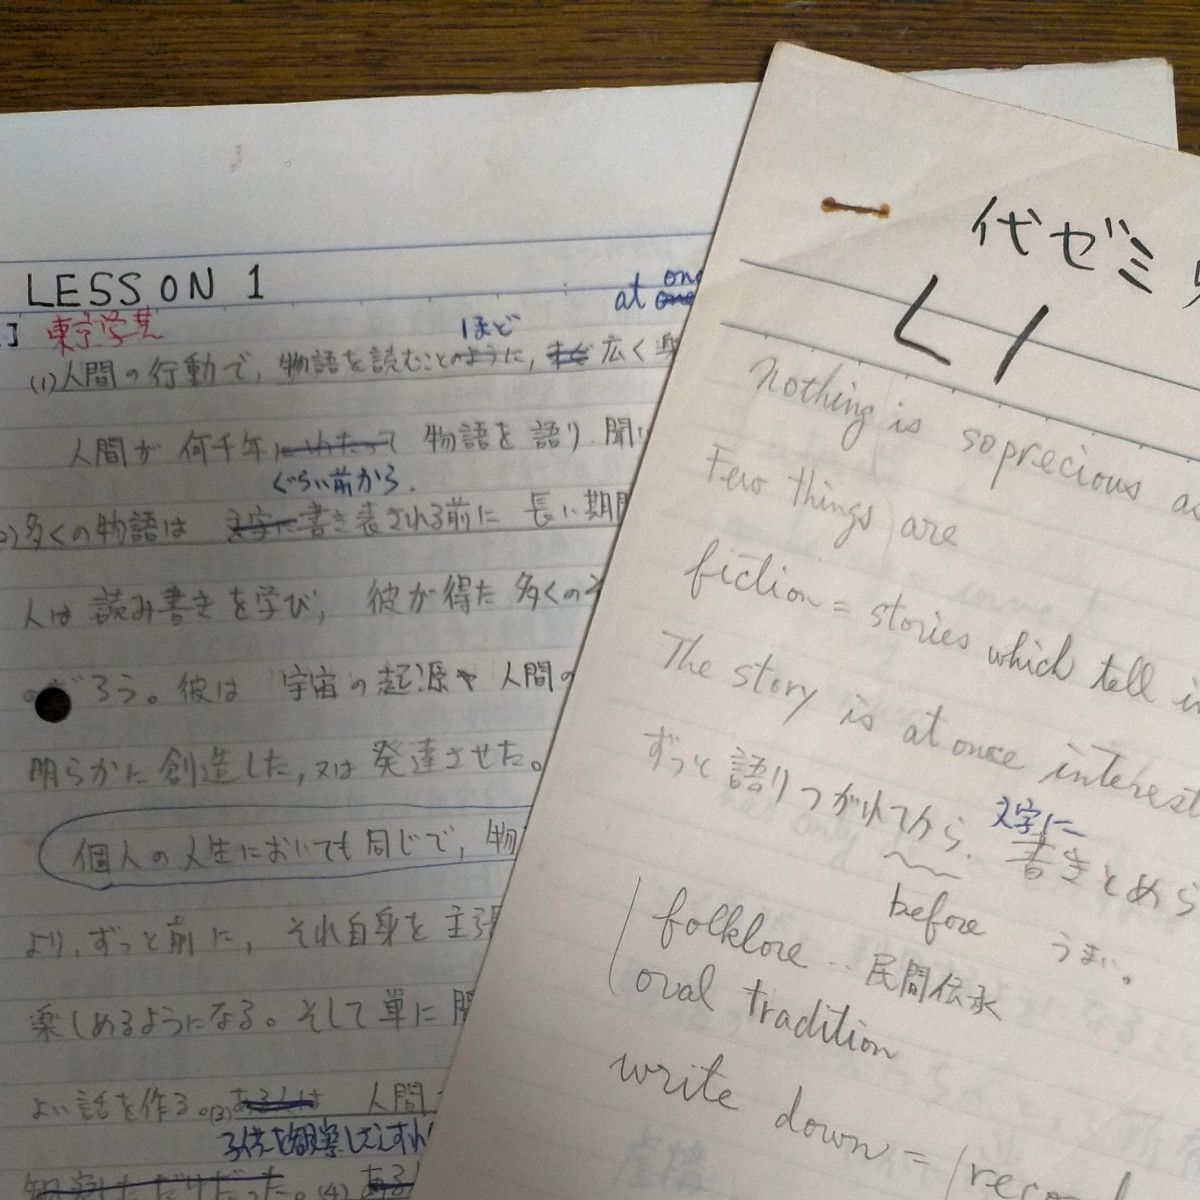 LESSON 1
at once
東京学芸
ほど
(1)人間の行動で, 物語を読むことのように, まぐ 広く
人間が 何千年にわたって 物語を 語り 聞
ぐらい前から.
多くの物語は 文字に書き表される前に 長い期間
人は 読み書きを学び, 彼が得た 多くのそ
ろう。彼は 宇宙の起源や人間の
明らかに 創造した, 又は 発達させた。
個人の人生においても同じで, 物
より, ずっと前に, それ自身を主張
楽しめるようになる。そして単に
よい話を作る。(3)あるいは 人間
子供を観察しさえすれ
(4) ある
代ゼミ
L1
Nothing is so precious as
Few things are
fiction = stories which tell
The story is at once interest
ずっと語りつがれてから, 文字に
書きとめら
before
うまい。
folklore .. 民間伝承
oral tradition
write down = record